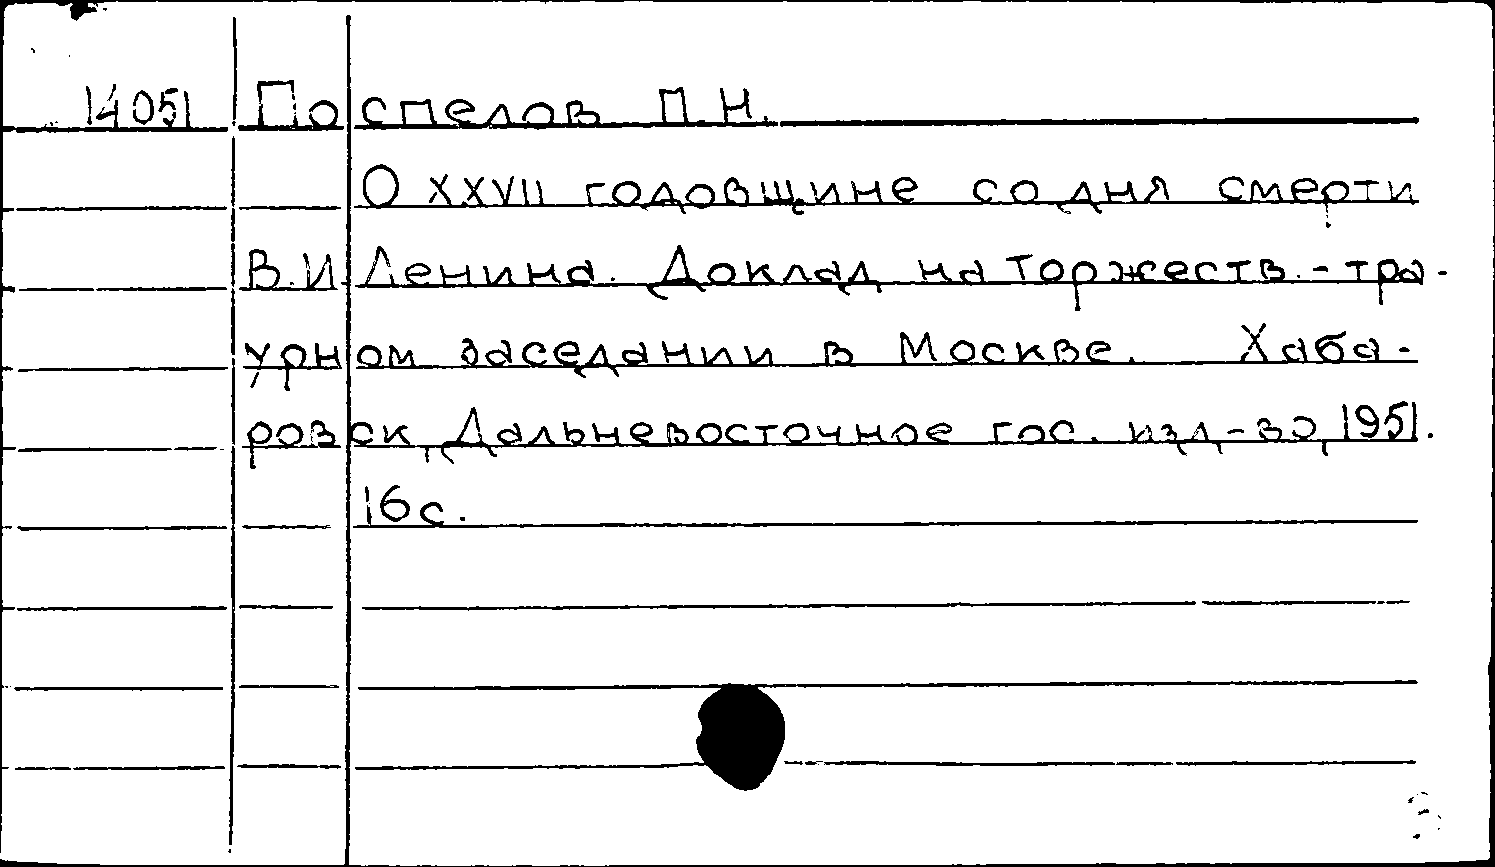 14051 Поспелов П.Н.
О XXVII годовщине со дня смерти
В.И. Ленина. Доклад на торжеств.-тра-
урном заседании в Москве. Хаба-
ровск, Дальневосточное гос. изд-во, 1951.
16 с.